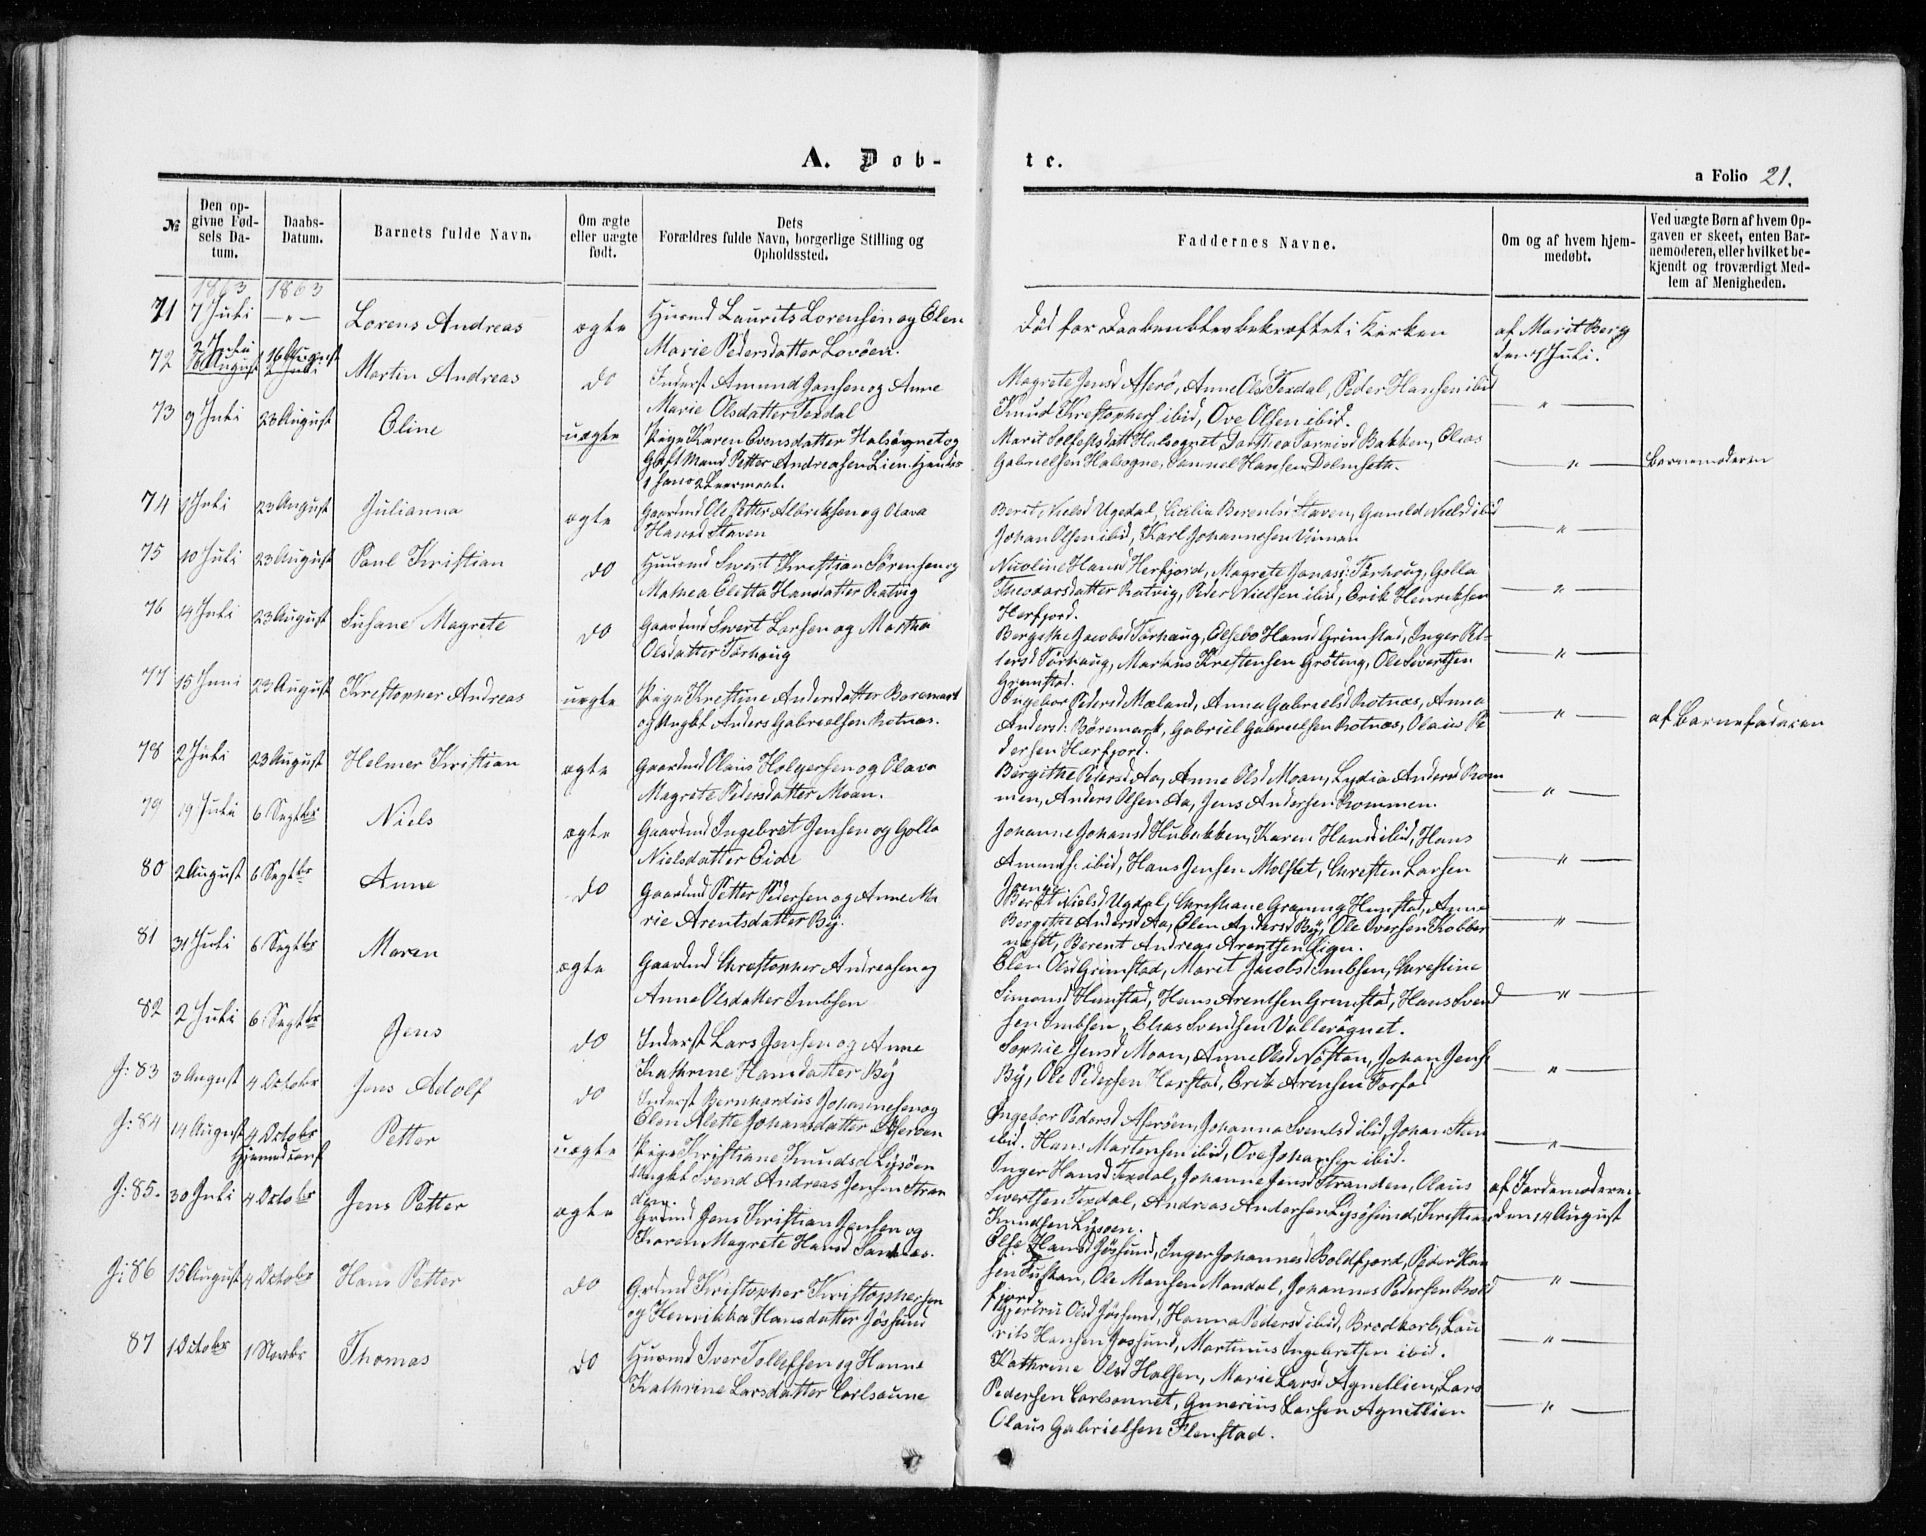 A. Døb-
te.
a Folio 21.
№
Den op-
givne Fød-
sels Da-
tum.
Daabs-
Datum.
Barnets fulde Navn.
Om ægte
eller uægte
født.
Dets
Forældres fulde Navn, borgerlige Stilling og
Opholdssted.
Faddernes Navne.
Om og af hvem hjem-
medøbt.
Ved uægte Børn af hvem Op-
gaven er skeet, enten Bar-
nemoderen, eller hvilket be-
kjendt og troværdigt Med-
lem af Menigheden.
1863 1863
71 7 Juli — " — Lorens Andreas ægte Huusmd Laurits Lorensen og Elen
Marie Pedersdatter Lovöen.
Död för Daaben blev bekræftet i Kirken
af Marit Berg
den 7 Juli.
72 2 Juli 16 August Martin Andreas do Inderst Amund Jensen og Anne
Marie Olsdatter Texdal
Magrete Jensd Asserö, Anne Olsd Texdal, Peder Hansen ibid
Knud Kristophers ibid, Ove Olsen ibid. "
73 9 Juli 23 August Eline uægte Pige Karen Evensdatter Halsögnet og
Gift Mand Petter Andreasen Lien
Gabrielsen Halsögne, Samuel Hansen Dolmseth. "
Barnemoderen
74 Juli 23 August Julianna ægte Gaardmd Ole Petter Albriksen og Olava
Hansd Staven
Berit Nielsd Ugedal, Cecilia Berentsd Staven, Gunild Nielsd ibid
Johan Olsen ibid, Karl Johannesen "
75 10 Juli 23 August Paul Kristian do Huusmd Sivert Kristian Sörensen og
Mathea Eletta Hansdatter Ratvig
Nicoline Hansd Herfjord, Magrete Jonasd Törhoug, Golla
Theodorsdatter Ratvig, Peder Nielsen ibid, Erik Henriksen
Herfjord. "
76 14 Juli 23 August Susane Magrete do Gaardmd Sivert Larsen og Martha
Olsdatter Törhoug
Bergithe Jacobsd Törhaug, Elsebo Hansd Grimstad, Inger Pe-
tersd Törhaug, Markus Kristensen Gröting, Ole Sivertsen
Grimstad. "
77 15 Juni 23 August Kristopher Andreas uægte Pige Kristine Andersdatter Boremark
og Ungkl Anders Gabrielsen Rotnæs.
Ingebor Pedersd Mæland, Anna Gabrielsd Rotnæs, Anna
Andersd: Böremark, Gabriel Gabrielsen Rotnæs, Olaus Pe
dersen Herfjord. "
af Barnefaderen
78 2 Juli 23 August Helmer Kristian ægte Gaardmd Olaus Holgersen og Olava
Magrete Pedersdatter Moan.
Bergithe Pedersd Aa, Anne Olsd Moan, Lydia Andersd Rom
men, Anders Olsen Aa, Jens Andersen Rommen. "
79 19 Juli 6 Septbr Niels ægte Gaardmd Ingebret Jensen og Golla
Nielsdatter Eide
Johanne Johansd Hubakken, Karen Hansd ibid, Hans
Amunds. ibid, Hans Jensen Molstet, Christen Larsen "
80 2 August 6 Septbr Anne do Gaardmd Petter Pedersen og Anne Ma
rie Arentsdatter By.
Berit Nielsd Ugdal, Christiane Grönning Humstad, Anne
Bergitte Andersd Aa, Elen Andersd By, Ole Iversen Kobber
nesset, Berent Andreas Arentsen Eigen. "
81 31 Juli 6 Septbr Maren ægte Gaardmd Christopher Andreasen og
Anne Olsdatter Imbsen
Elen Olsd Grimstad, Marit Jacobsd Imbsen, Christine
Simonsd Humstad, Hans Arentsen Grimstad, Hans Svend
sen Imbsen, Elias Svendsen Vallersögnet. "
82 2 Juli 6 Septbr Jens do Inderst Lars Jensen og Anne
Kathrine Hansdatter By
Sophie Jensd Moan, Anne Olsd Nöstan, Johan Jens
By, Ole Pedersen Harstad, Erik Arensen Forfod "
J: 83 3 August 4 October Jens Adolf do Inderst Bernhardus Johannesen og
Elen Alette Johansdatter Asseröen
Ingebor Pedersd Asseröen, Johanna Svendsd ibid, Johan Sten
ibid. Hans Martensen ibid, Ove Johansen ibid. "
J: 84 14 August 4 October Petter uægte Pige Kristiane Knudsd Lysöen
Ungkl Svend Andreas Jensen Stran
den.
Inger Hansd Texdal, Johanne Jensd Stranden, Olaus
Sivertsen Texdal, Andreas Andersen Lysösund, Kristian
Knudsen Lysöen.
af Jordemoderen
den 14 August
J: 85. 30 Juli 4 October Jens Petter ægte Grdmd Jens Kristian Jensen og
Karen Magrete Hansd Sandnes.
Else Hansd Jössund, Inger Johannesd Boldfjord, Peder Han
sen Tustan, Ole Monsen Mandal, Johannes Pedersen Bold
fjord "
J: 86 15 August 4 October Hans Petter do Grdmd Kristopher Kristophersen
og Henrikka Hansdatter Jössund
Gjertru Olsd Jössund, Hanna Pedersd ibid, Brodkorb, Lau
rits Hansen Jössund, Martinus Ingebretsen ibid. "
87 1 October 1 Novbr Thomas do Huusmd Iver Tollefsen og Hanne
Kathrine Larsdatter Carlsaune
Kathrine Olsd Halsen, Marie Larsd Agnetlien, Lars
Pedersen Carlsonnet, Gunerius Larsen Agnetlien
Olaus Gabrielsen Flenstad. "